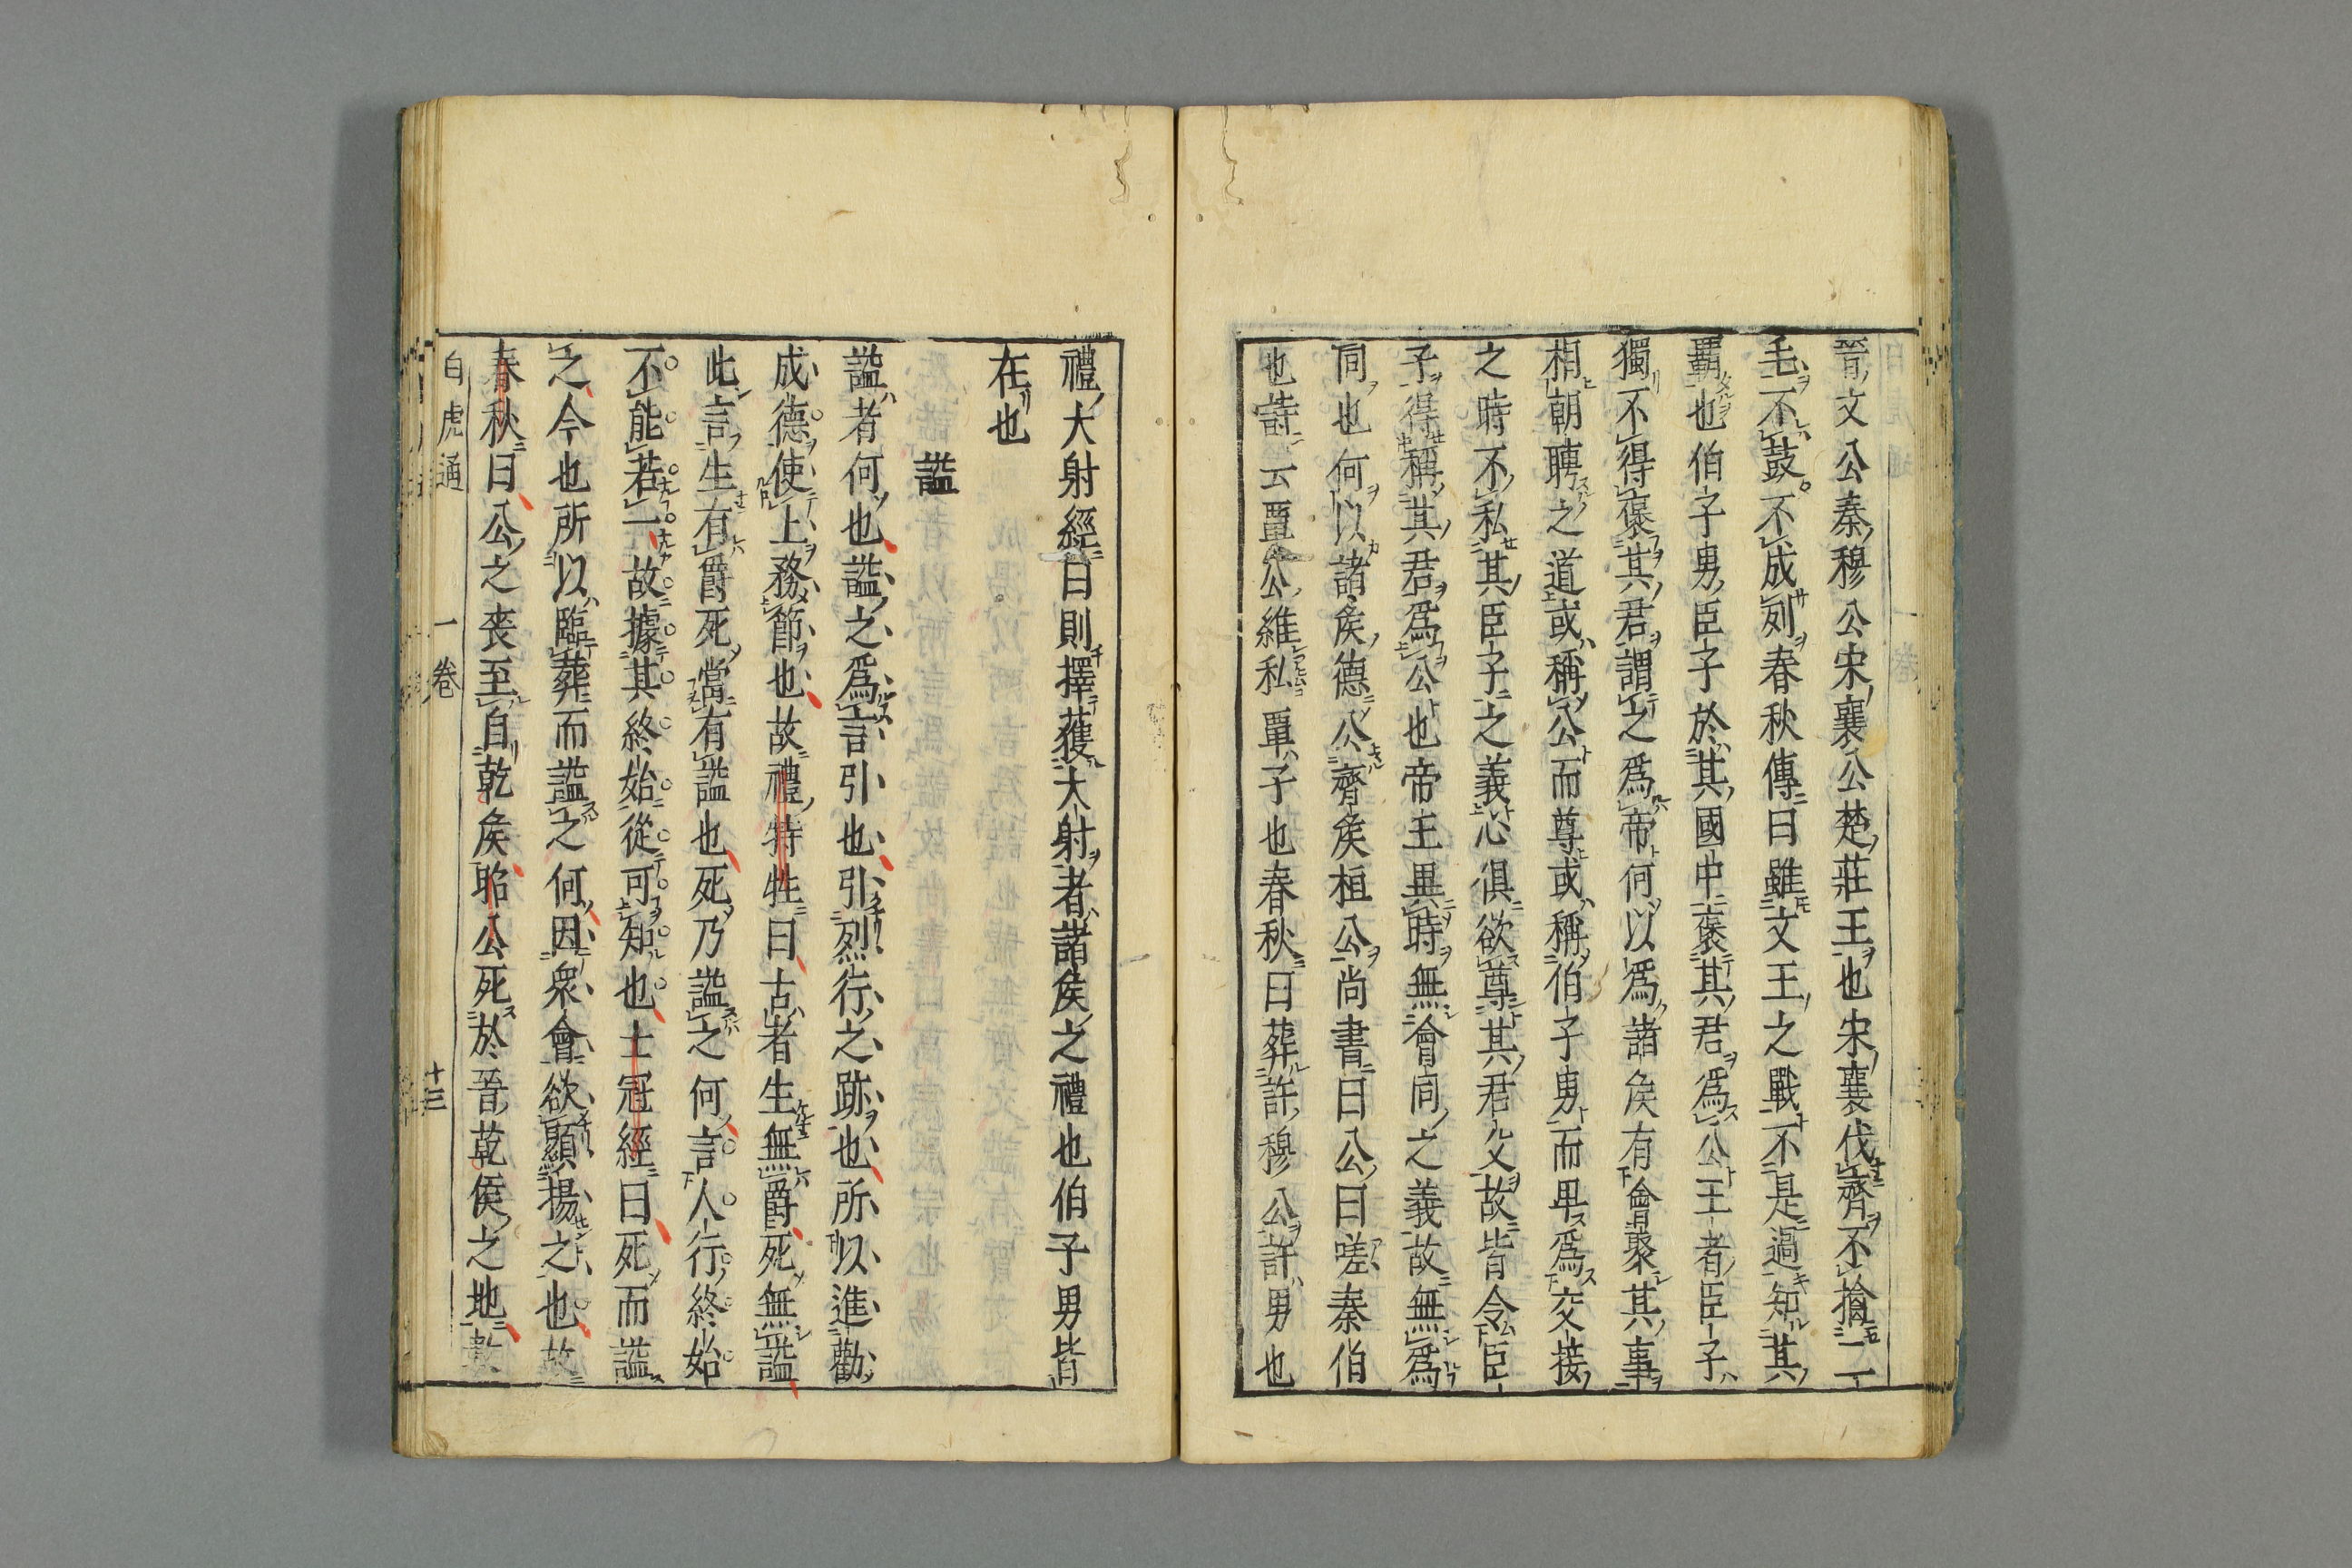 晉文公秦穆公宋襄公楚莊王也宋襄伐齊不擒二
毛不鼓不成列春秋傳曰雖文王之戰不是過知其
覇也伯子男臣子於其國中褒其君爲公王者臣子
獨不得褒其君謂之爲帝何以爲諸矦有會聚其事
相朝聘之道或稱公而尊或稱伯子男而卑爲交接
之時不私其臣子之義心俱欲尊其君父故皆令臣
子得稱其君爲公也帝王異時無會同之義故無爲
同也何以諸矦德公齊矦桓公尚書曰公曰嗟秦伯
也詩云覃公維私覃子也春秋曰葬許穆公許男也
禮大射經曰則擇獲大射者諸矦之禮也伯子男皆
在也
謚
謚者何也謚之爲言引也引烈行之跡也所以進勸
成德使上務節也故禮特牲曰古者生無爵死無謚
此言生有爵死當有謚也死乃謚之何言人行終始
不能若一故據其終始從可知也士冠經曰死而謚
之今也所以臨葬而謚之何因衆會欲顯揚之也故
春秋曰公之喪至自乾矦昭公死於晉乾侯之地數
白虎通 一卷 十三